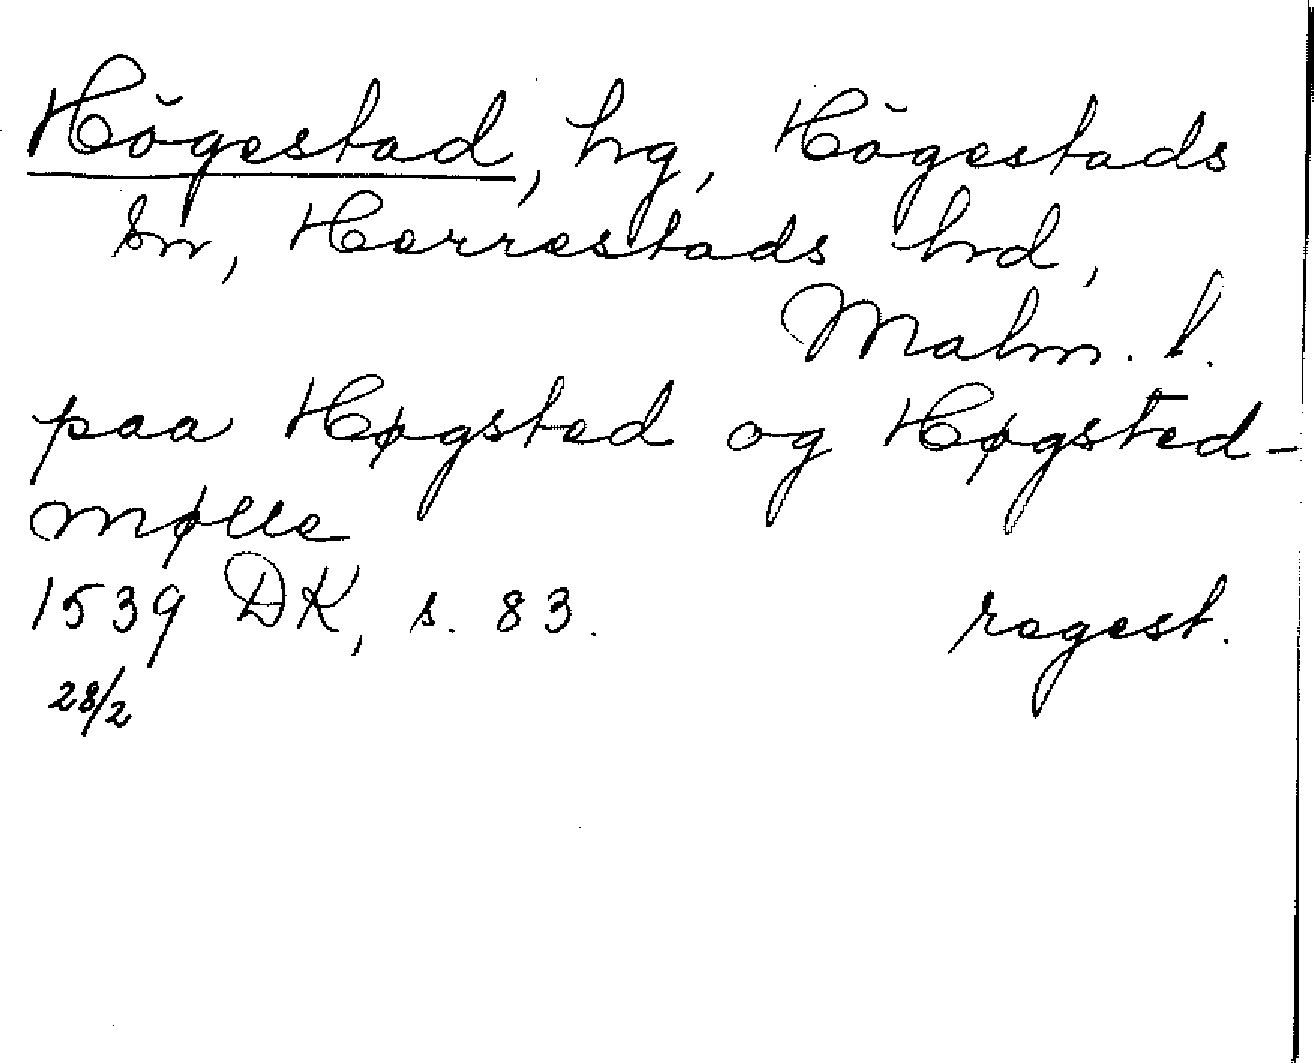 Högestad, hg, Högestads
sn, Herrestads hrd,
Malm. l.
paa Høgsted og Høgsted-
mølle
1539 DK, s. 83. regest.
28/2